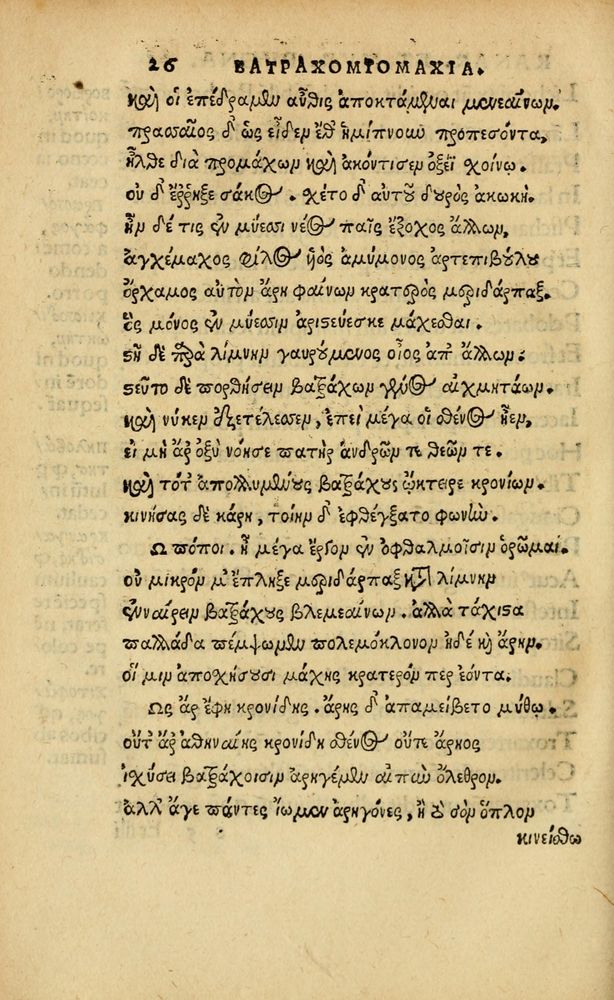 26 ΒΑΤΡΑΧΟΜΥΟΜΑΧΙΑ.
καὶ οἱ ἐπέδραμεν αὖθις ἀποκτάμεναι μενεαίνων.
πρασσαῖος δ' ὡς εἶδεν ἔθ' ἡμίπνουν προπεσόντα,
ἦλθε διὰ προμάχων καὶ ἀκόντισεν ὀξέϊ χοίνῳ.
οὐ δ' ἔῤῥηξε σάκος. χέτο δ' αὐτοῦ δουρὸς ἀκωκή.
ἦν δέ τις ἐν μύεσσι νέος παῖς ἔξοχος ἄλλων,
ἀγχέμαχος φίλος υἱὸς ἀμύμονος ἀρτεπιβούλου
ὄρχαμος αὐτὸν ἄρη φαίνων κρατερὸς μεριδάρπαξ.
ὃς μόνος ἐν μύεσσιν ἀριστεύεσκε μάχεσθαι.
στῆ δὲ παρὰ λίμνην γαυρούμενος οἶος ἀπ' ἄλλων·
στεῦτο δὲ πορθήσειν βατράχων γένος αἰχμητάων.
καὶ νύ κεν ἐξετέλεσσεν, ἐπεὶ μέγα οἱ σθένος ἦεν,
εἰ μὴ ἄρ' ὀξὺ νόησε πατὴρ ἀνδρῶν τε θεῶν τε.
καὶ τότ' ἀπολλυμένους βατράχους ᾤκτειρε κρονίων.
κινήσας δὲ κάρη, τοίην δ' ἐφθέγξατο φωνήν.
Ὢ πόποι. ἦ μέγα ἔργον ἐν ὀφθαλμοῖσιν ὁρῶμαι.
οὐ μικρόν μ' ἔπληξε μεριδάρπαξ κατὰ λίμνην
ἐναίρειν βατράχους βλεμεαίνων. ἀλλὰ τάχιστα
παλλάδα πέμψωμεν πολεμόκλονον ἠδὲ καὶ ἄρην.
οἵ μιν ἀποσχήσουσι μάχης κρατερόν περ ἐόντα.
Ὣς ἄρ' ἔφη κρονίδης. ἄρης δ' ἀπαμείβετο μύθῳ.
οὔτ' ἄρ' ἀθηναίης κρονίδη σθένος οὔτε ἄρηος
ἰσχύσει βατράχοισιν ἀρηγέμεν αἰπὺν ὄλεθρον.
ἀλλ' ἄγε πάντες ἴωμεν ἀρηγόνες, ἢ τὸ σὸν ὅπλον
κινείσθω